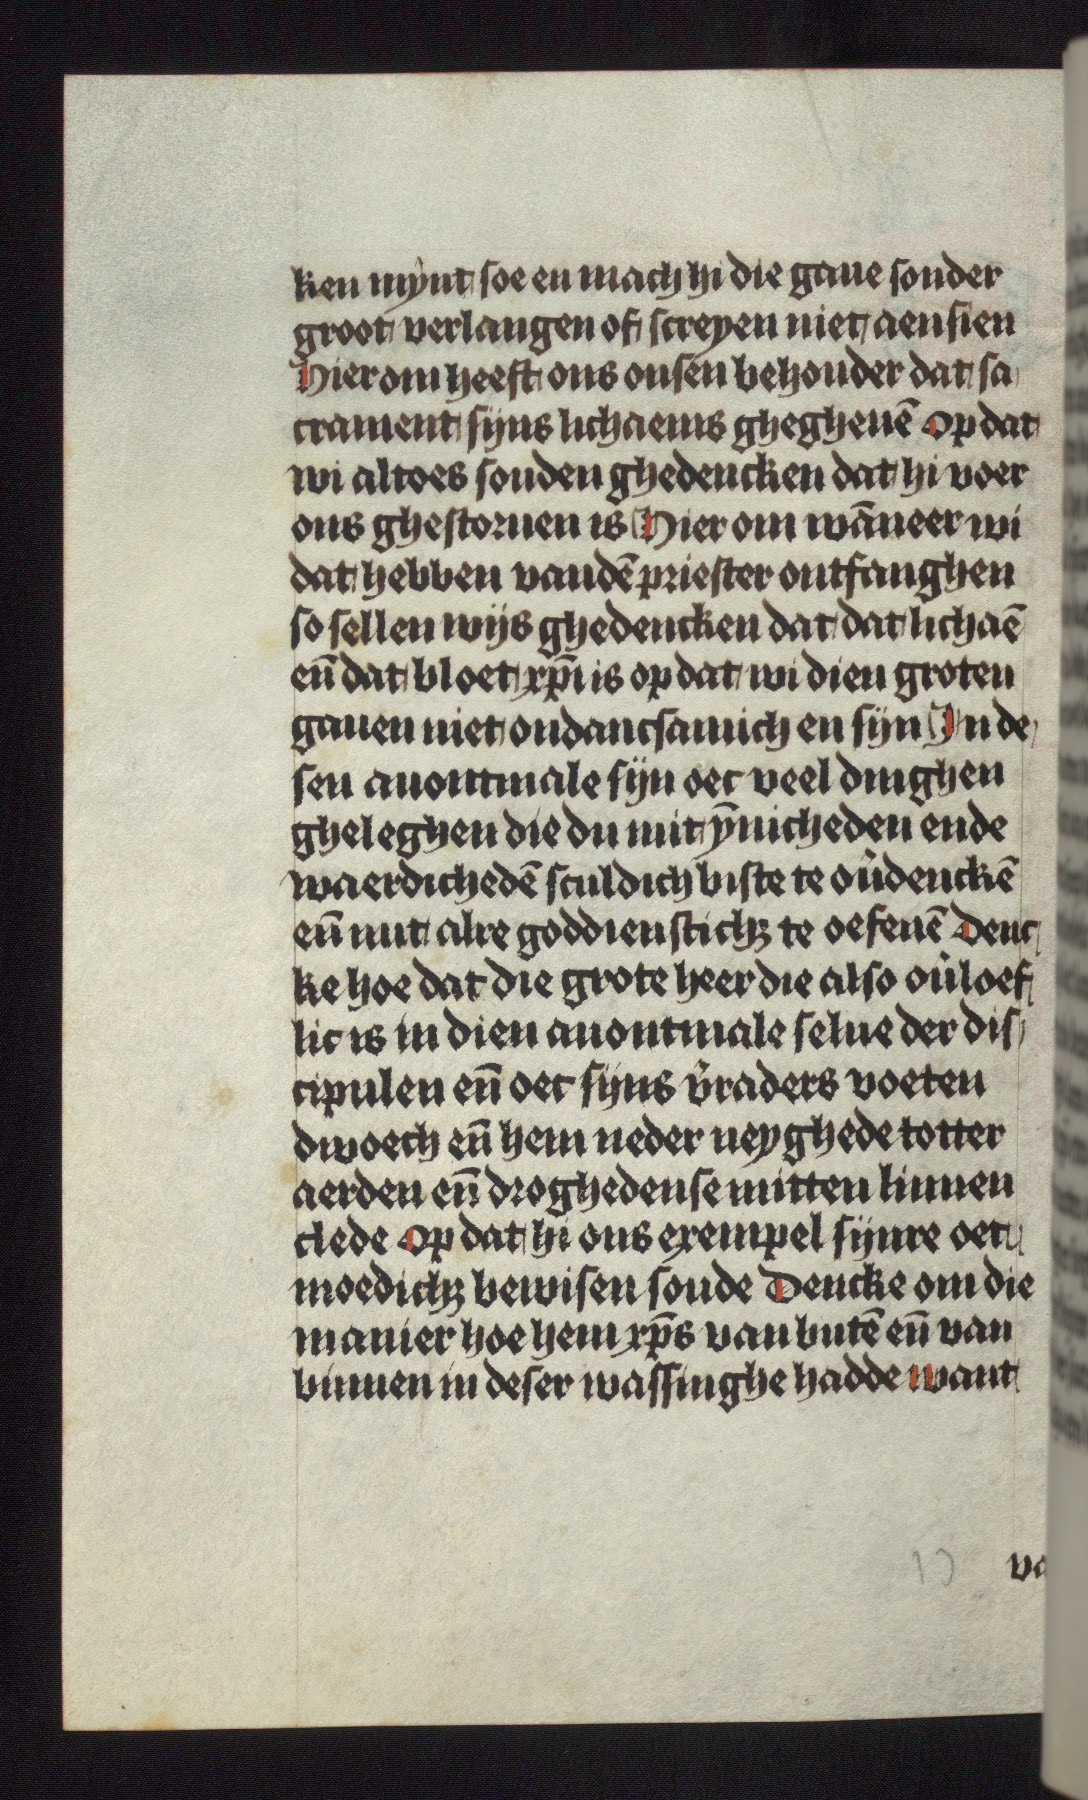 ken mynt soe en mach hi die gaue sonder
groot verlangen of screyen niet aensien
Hier om heeft ons onsen behouder dat sa
crament sijns lichaems ghegheuē Op dat
wi altoes souden ghedencken dat hi voer
ons ghestoruen is Hier om wāneer wi
dat hebben vandē priester ontfanghen
so sellen wijs ghedencken dat dat lichaē
eñ dat bloet xp̄i is op dat wi dien groten
gauen niet ondancsamich en sijn In de
sen auontmale sijn oec veel dinghen
gheleghen die du mit ȳnicheden ende
waerdichedē sculdich biste te ou̇denckē
eñ mit alre goddiensticꝫ te oefenē Denc
ke hoe dat die grote heer die also ou̇loef
lic is in dien auontmale selue der dis
cipulen eñ oec sijns v̇raders voeten
dwoech eñ hem neder neyghede totter
aerden eñ droghedense mitten linnen
clede Op dat hi ons exempel sijnre oet
moedichꝫ bewisen soude Dencke om die
manier hoe hem xp̄s van butē eñ van
binnen in deser wassinghe hadde want